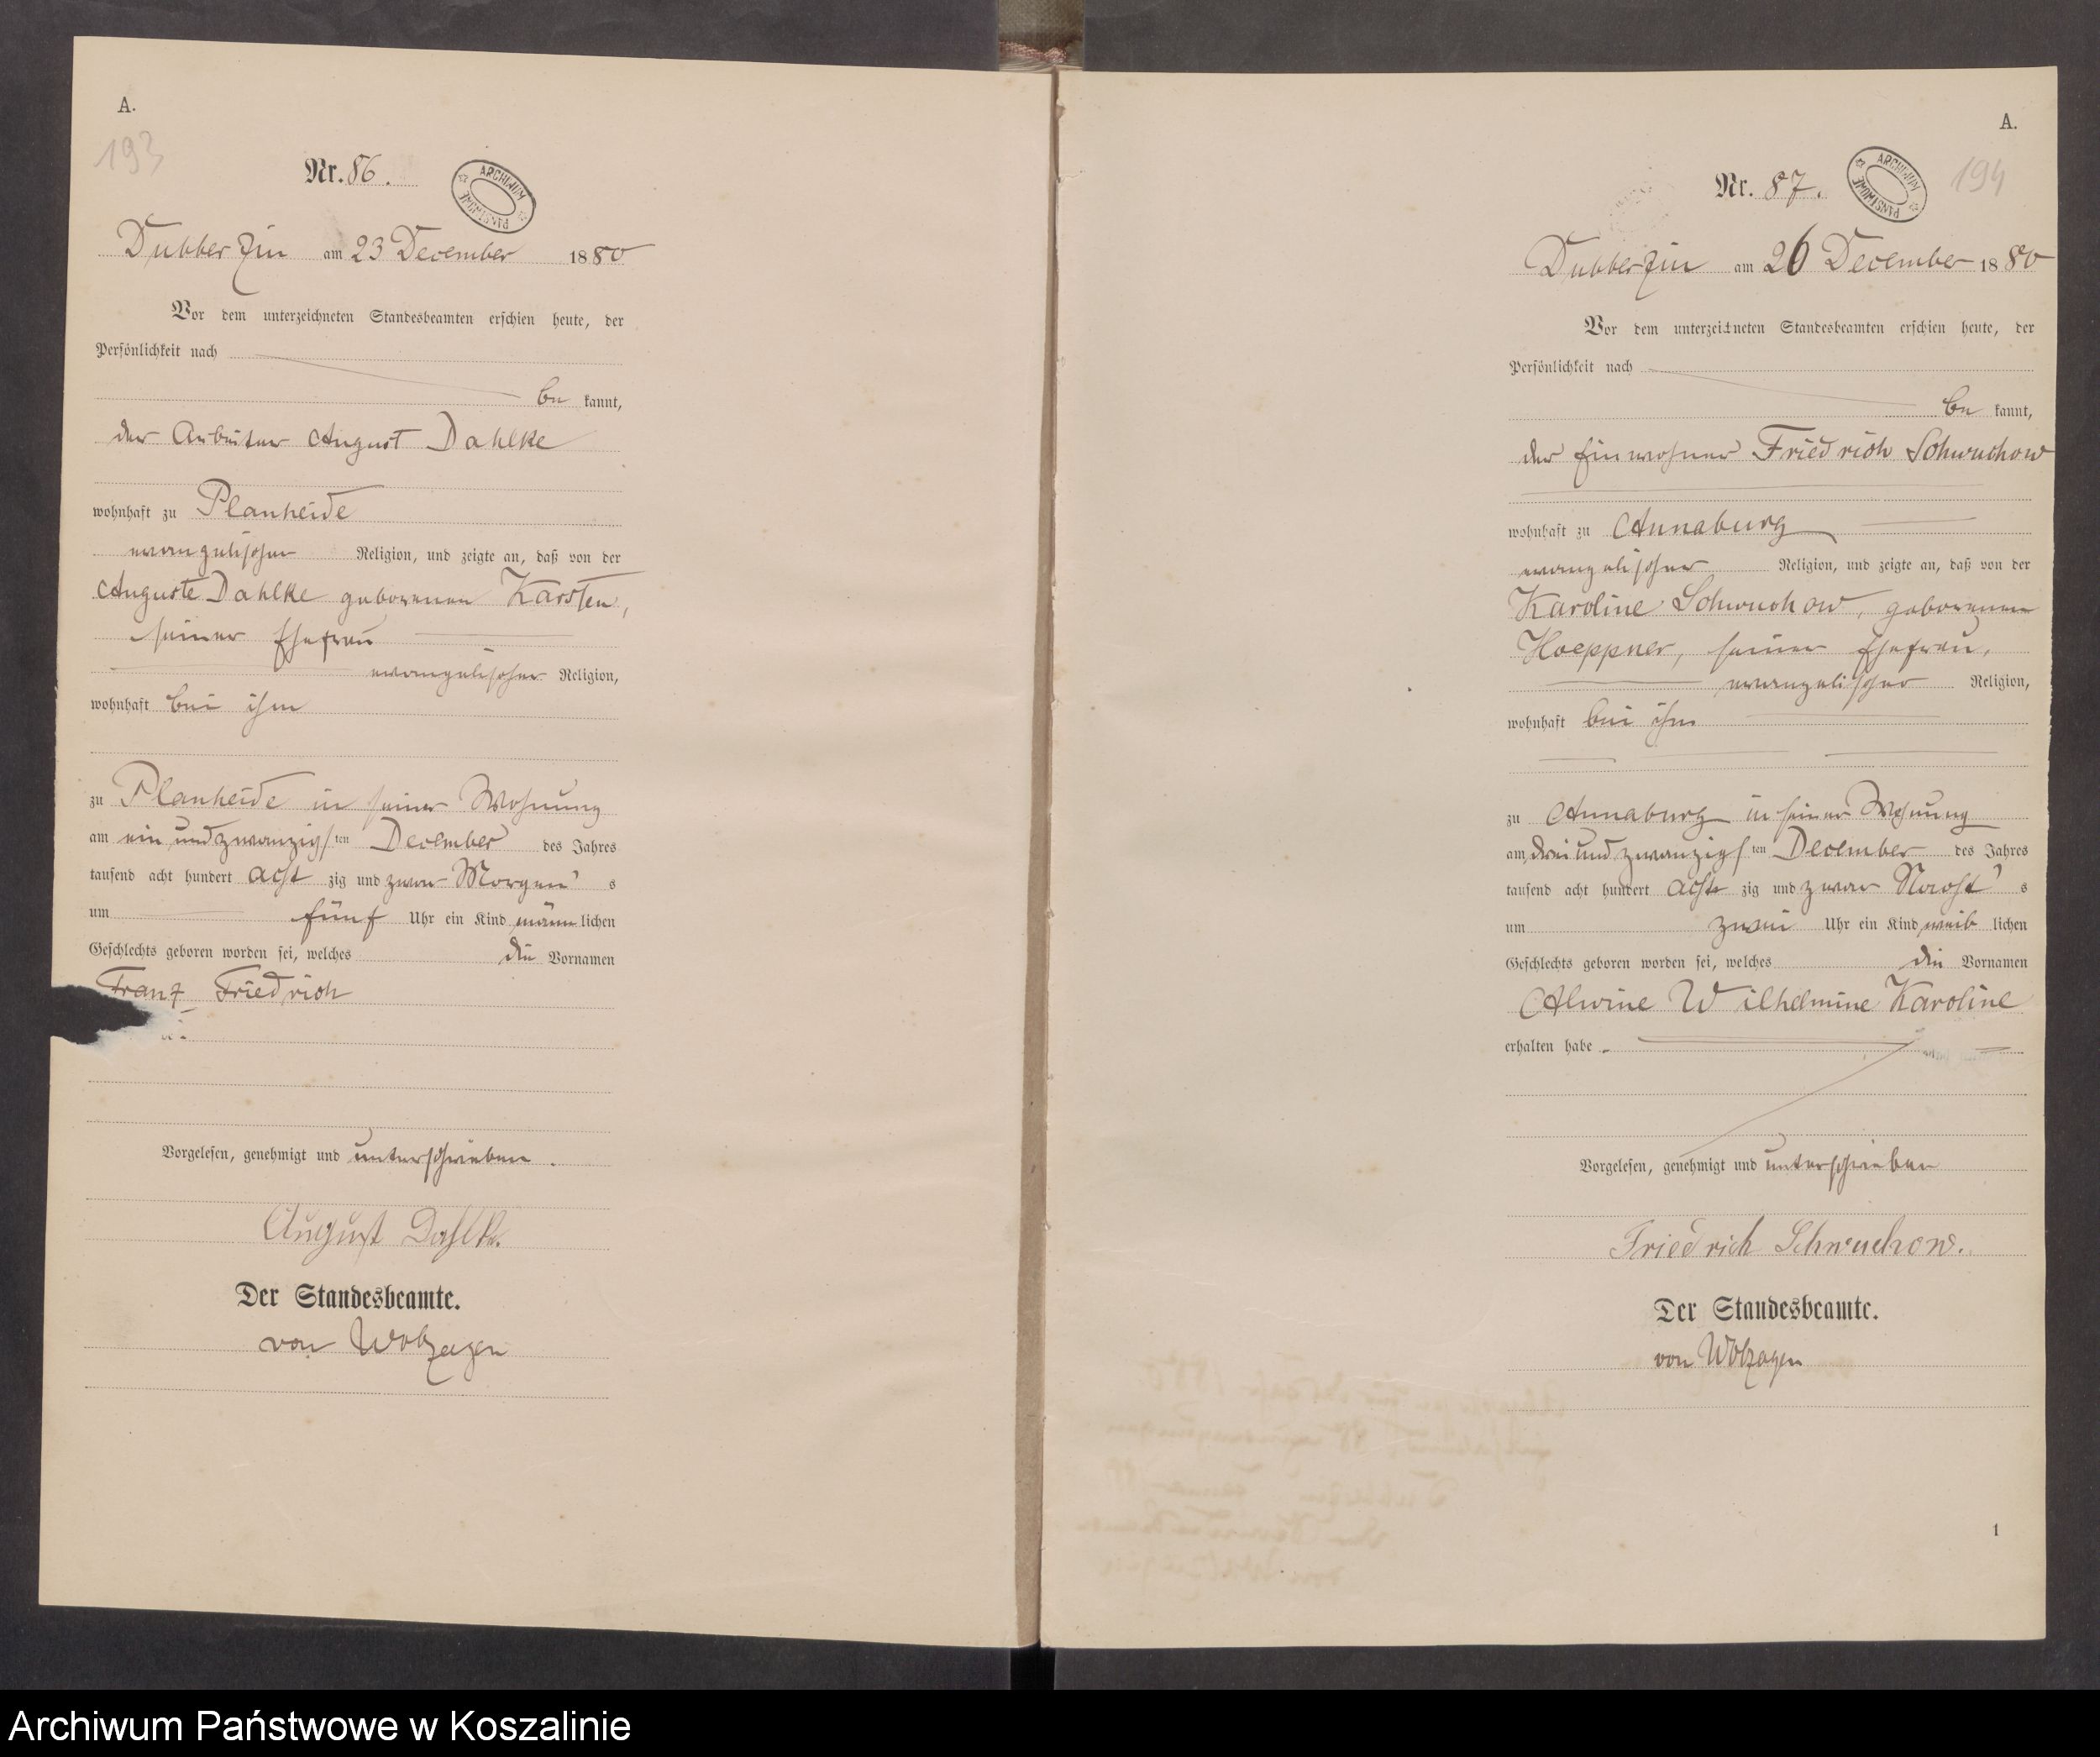 A.
193
Nr. 86.
ARCHIWUM PAŃSTWOWE
Dubberzin am 23 December 1880
Vor dem unterzeichneten Standesbeamten erschien heute, der
Persönlichkeit nach
be kannt,
der Arbeiter August Dahlke
wohnhaft zu Planheide
evangelischer Religion, und zeigte an, daß von der
Auguste Dahlke geborenen Karsten,
seiner Ehefrau
evangelischer Religion,
wohnhaft bei ihm
zu Planheide in seiner Wohnung
am ein und zwanzigsten December des Jahres
tausend acht hundert acht zig und zwar Morgens
um fünf Uhr ein Kind männlichen
Geschlechts geboren worden sei, welches die Vornamen
Franz Friedrich
Vorgelesen, genehmigt und unterschrieben.
August Dahlke.
Der Standesbeamte.
von Wolzogen
A.
194
Nr. 87.
ARCHIWUM PAŃSTWOWE
Dubberzin am 26 December 1880
Vor dem unterzeichneten Standesbeamten erschien heute, der
Persönlichkeit nach
be kannt,
der Einwohner Friedrich Schwuchow
wohnhaft zu Annaburg
evangelischer Religion, und zeigte an, daß von der
Karoline Schwuchow, geborenen
Hoeppner, seiner Ehefrau,
evangelischer Religion,
wohnhaft bei ihm
zu Annaburg in seiner Wohnung
am drei und zwanzigsten December des Jahres
tausend acht hundert acht zig und zwar Nachts
um zwei Uhr ein Kind weiblichen
Geschlechts geboren worden sei, welches die Vornamen
Alwine Wilhelmine Karoline
erhalten habe.
Vorgelesen, genehmigt und unterschrieben
Friedrich Schwuchow.
Der Standesbeamte.
von Wolzogen
1
Archiwum Państwowe w Koszalinie